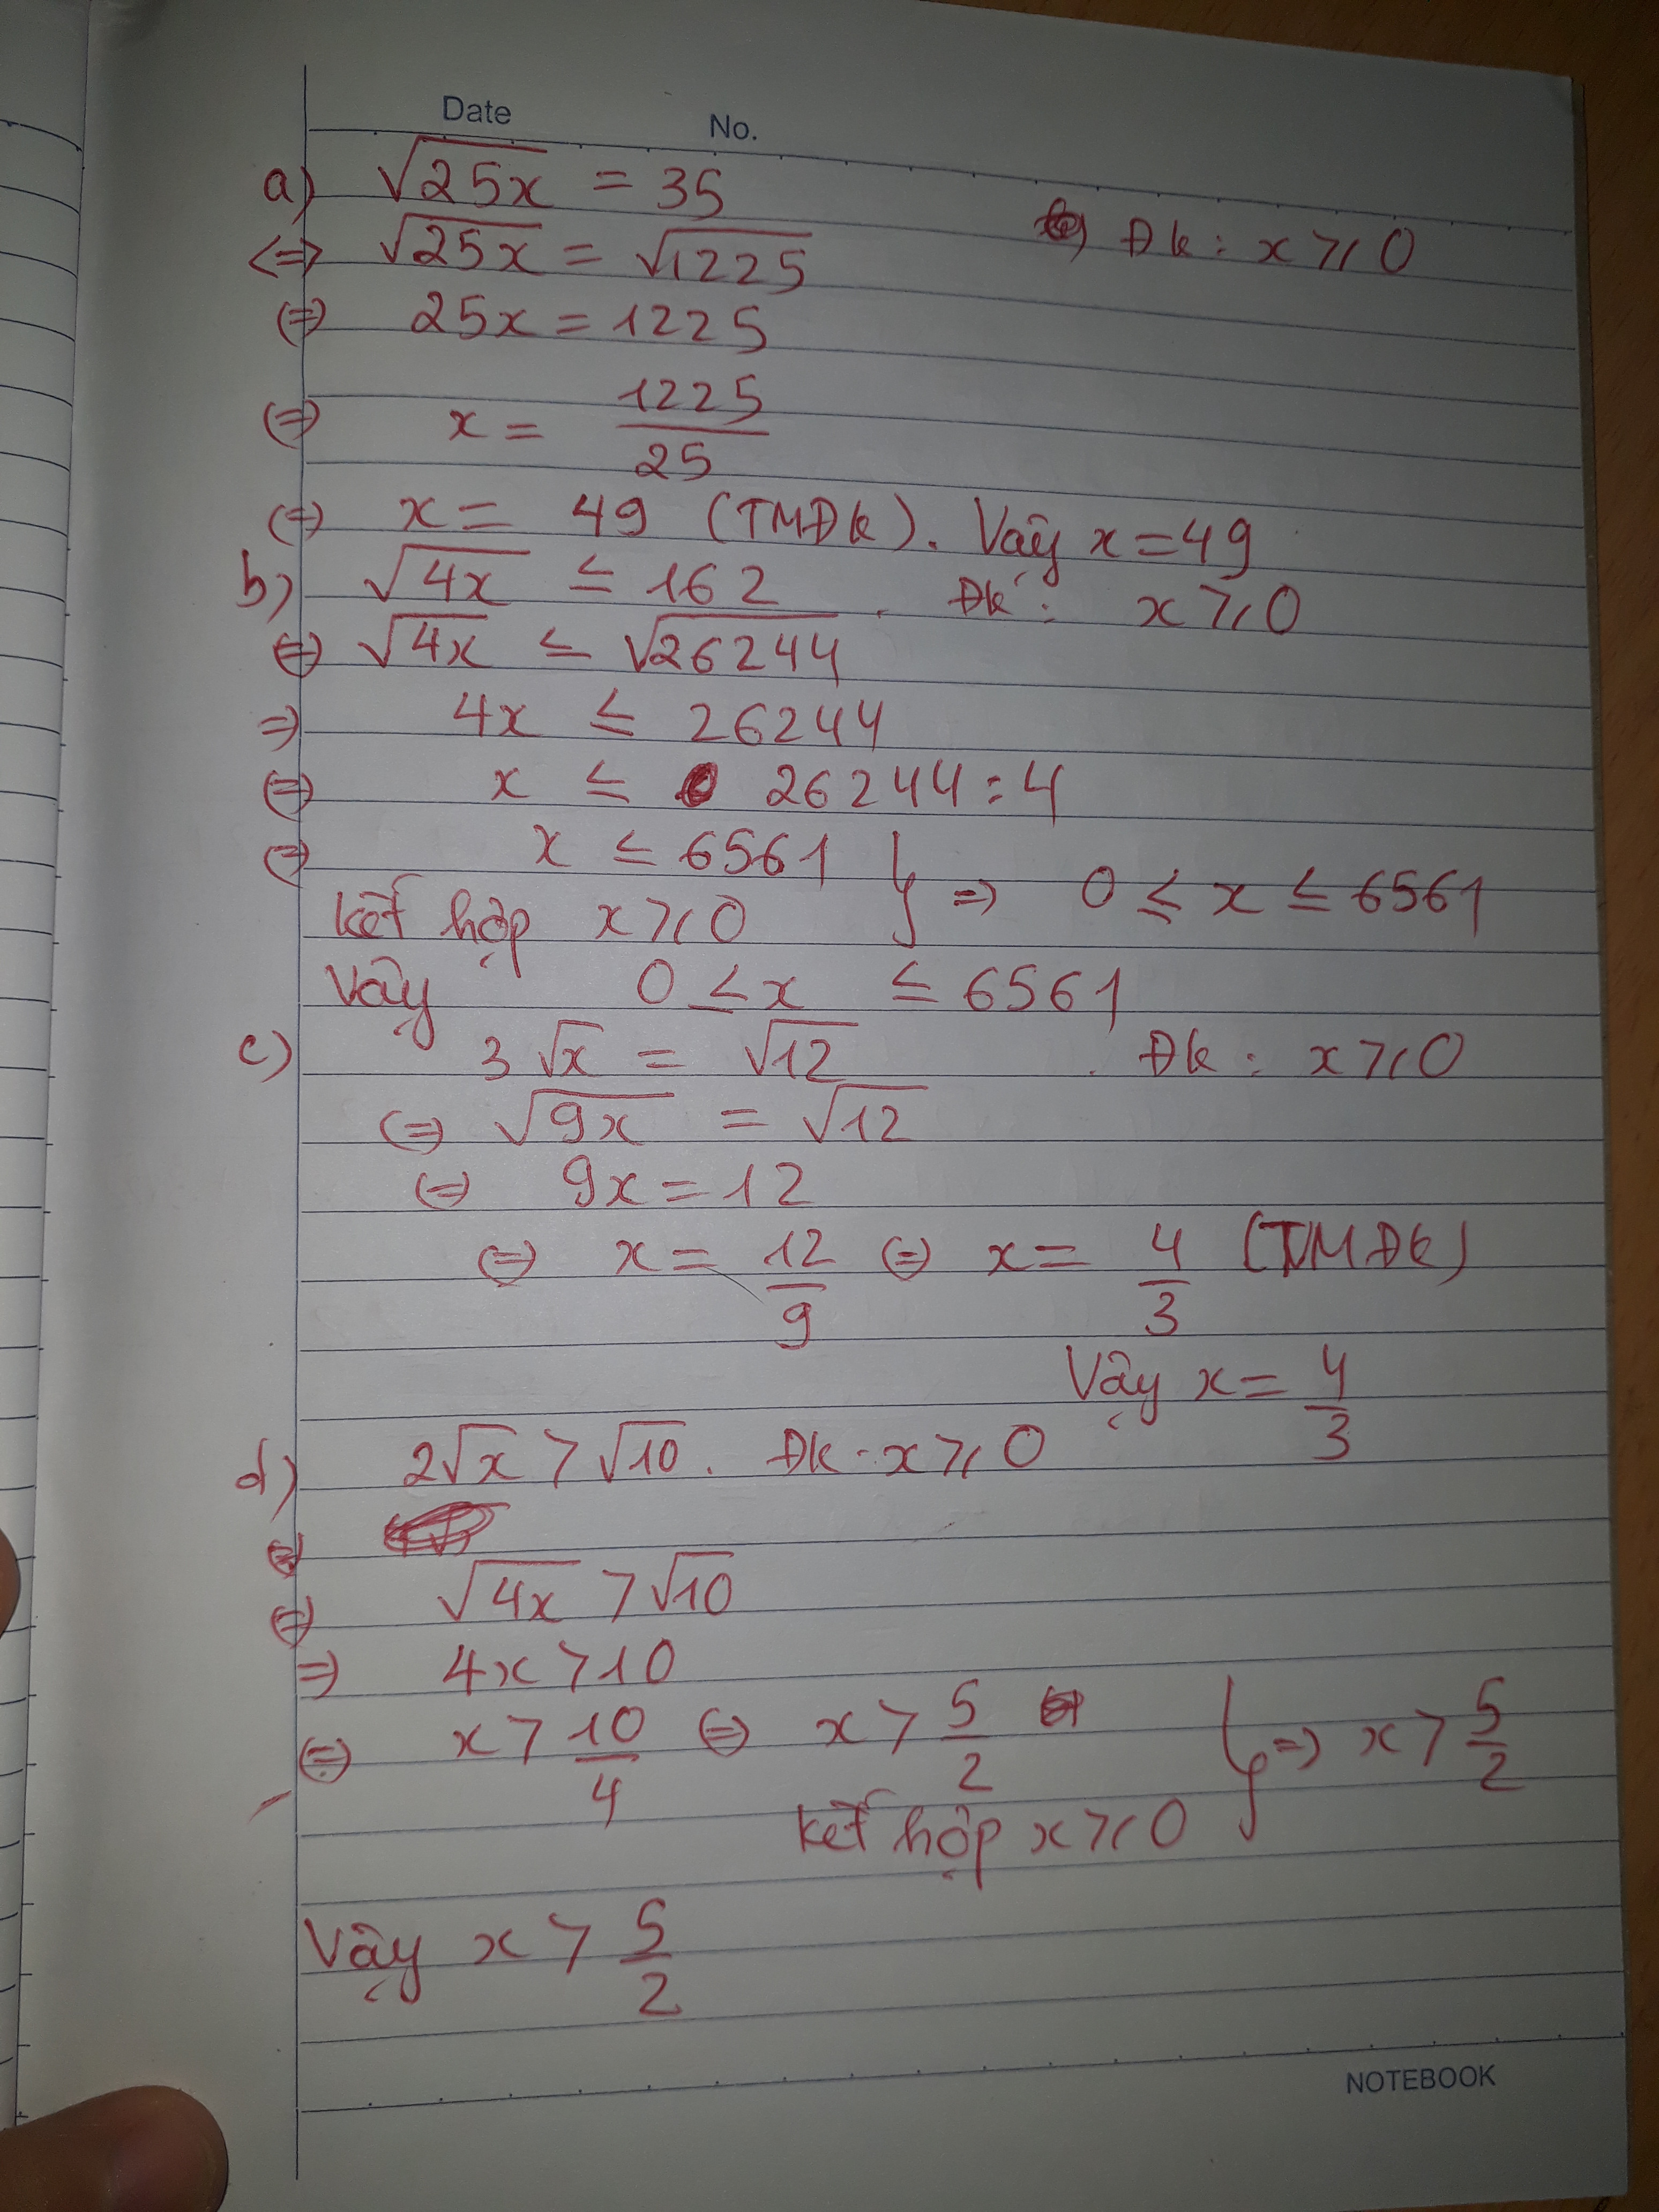 Date No.
a) √25x = 35
Đk: x ⩾ 0
<=> √25x = √1225
<=> 25x = 1225
<=> x = 1225/25
<=> x = 49 (TMĐK). Vậy x = 49
b) √4x ≤ 162. Đk: x ⩾ 0
<=> √4x ≤ √26244
=> 4x ≤ 26244
<=> x ≤ 26244:4
<=> x ≤ 6561 } => 0 ≤ x ≤ 6561
kết hợp x ⩾ 0
Vậy 0 ≤ x ≤ 6561
c) 3√x = √12. Đk: x ⩾ 0
<=> √9x = √12
<=> 9x = 12
<=> x = 12/9 <=> x = 4/3 (TMĐK)
Vậy x = 4/3
d) 2√x > √10. Đk: x ⩾ 0
<=> √4x > √10
=> 4x > 10
<=> x > 10/4 <=> x > 5/2 } => x > 5/2
kết hợp x ⩾ 0
Vậy x > 5/2
NOTEBOOK